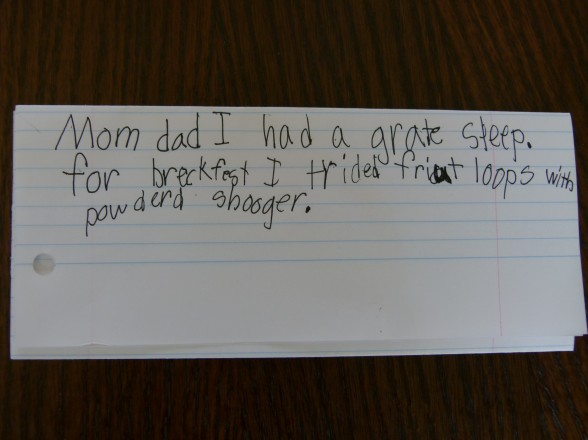 Mom dad I had a grate sleep.
for breckfest I trided friut loops with
powderd shooger.